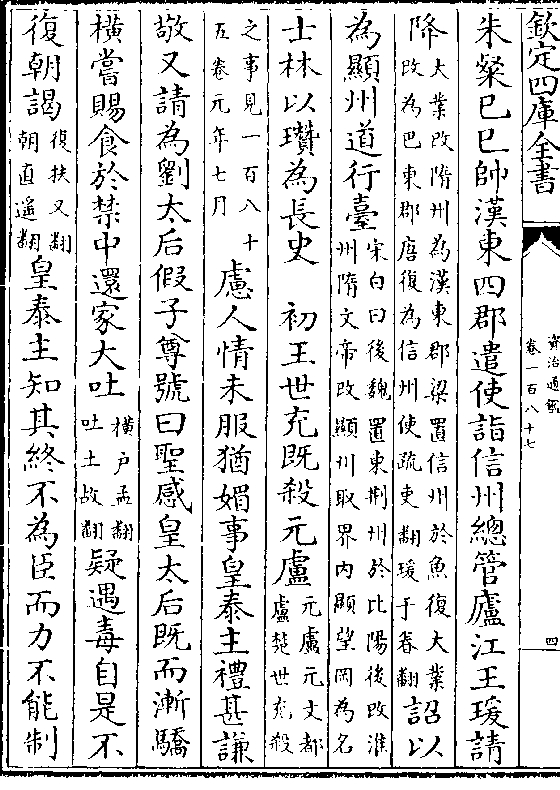 欽定四庫全書
資治通鑑
卷一百八十七
四
朱粲己巳帥漢東四郡遣使詣信州總管廬江王瑗請
降大業改隋州為漢東郡梁置信州於魚復大業改為巴東郡唐復為信州使疏吏翻瑗于眷翻詔以
為顯州道行臺宋白曰後魏置東荆州於比陽後改淮州隋文帝改顯州取界内顯望岡為名
士林以瓚為長史　初王世充既殺元盧元盧元文都盧楚世充殺
之事見一百八十五卷元年七月慮人情未服猶媚事皇泰主禮甚謙
敬又請為劉太后假子尊號曰聖感皇太后既而漸驕
橫嘗賜食於禁中還家大吐橫户孟翻吐土故翻疑遇毒自是不
復朝謁復扶又翻朝直遥翻皇泰主知其終不為臣而力不能制